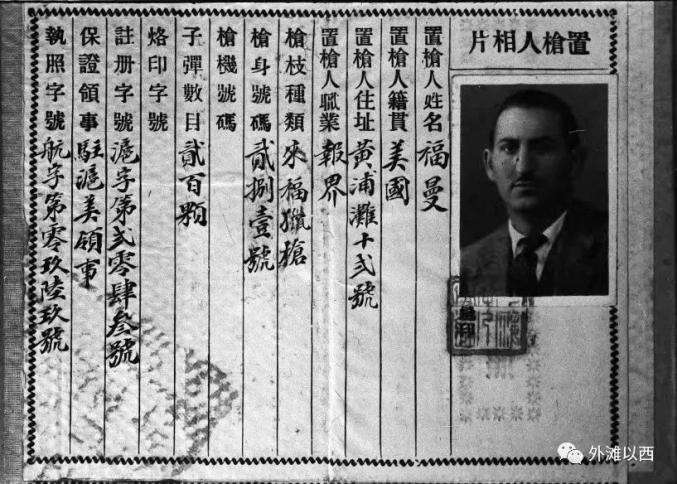 置槍人相片
置槍人姓名 福曼
置槍人籍貫 美國
置槍人住址 黃浦灘十弍號
置槍人職業 報界
槍枝種類 來福獵槍
槍身號碼 貳捌壹號
槍機號碼
子彈數目 貳百顆
烙印字號
註册字號 滬字第弍零肆叁號
保證領事 駐滬美領事
執照字號 航字第零玖陸玖號
外滩以西